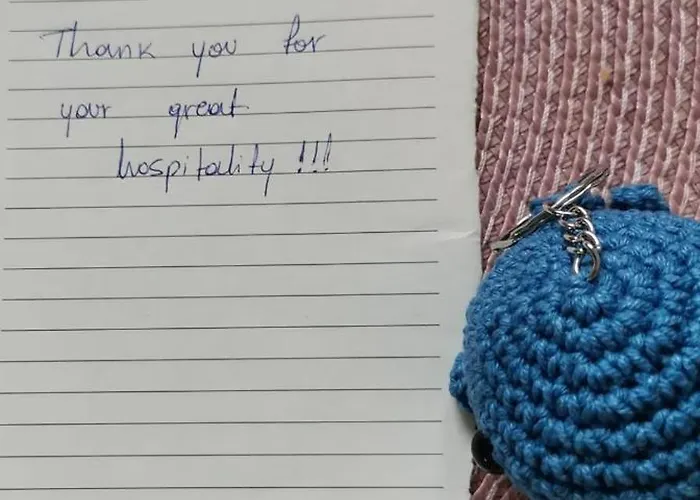 Thank you for
your great
hospitality !!!